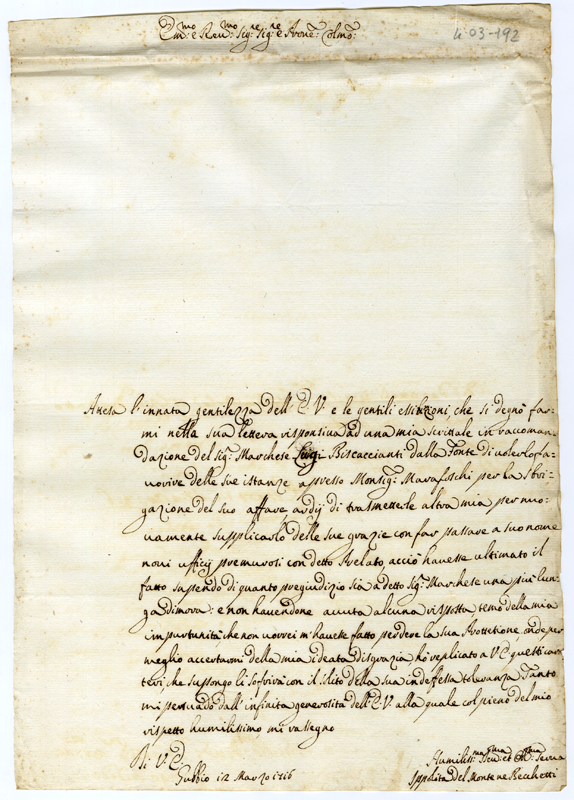 Em.mo e Reu.mo Sig.re Sig.re e Prone Colmo
4 03-192
Attesa l'innata gentilezza dell'E.V. e le gentili esibizioni, che si degnò far-
mi nella sua lettera risponsiva ad una mia scrittale in raccoman-
dazione del Sig.r Marchese Luigi Biscaccianti dalla Fonte di volerlo fa-
uorire delle sue istanze appresso Monsig.r Marafoschi per la sbri-
gazione del suo affare ardij di trasmetterle altra mia per nuo-
uamente supplicarlo delle sue grazie con far passare a suo nome
noui ufficij premurosi con detto Prelato, acciò hauesse ultimato il
fatto sapendo di quanto pregiudizio sia a detto Sig.r Marchese una più lun-
ga dimora; e non hauendone auuta alcuna risposta temo della mia
importunità, che non uorrei m'hauesse fatto perdere la sua Protettione, onde per
meglio accertarmi della mia ideata disgrazia hò replicato a V.E. questi carat-
teri, che suppongo li soffrirà con il solito della sua indefessa toleranza. Tanto
mi persuado dall'infinita generosità dell'E.V. alla quale col pieno del mio
rispetto humilissimo mi rassegno
Di V.E.
Gubbio 12 Marzo 1716
Humiliss.ma Deu.ma et Obl.ma Serua
Ippolita del Monte ne Becchetti